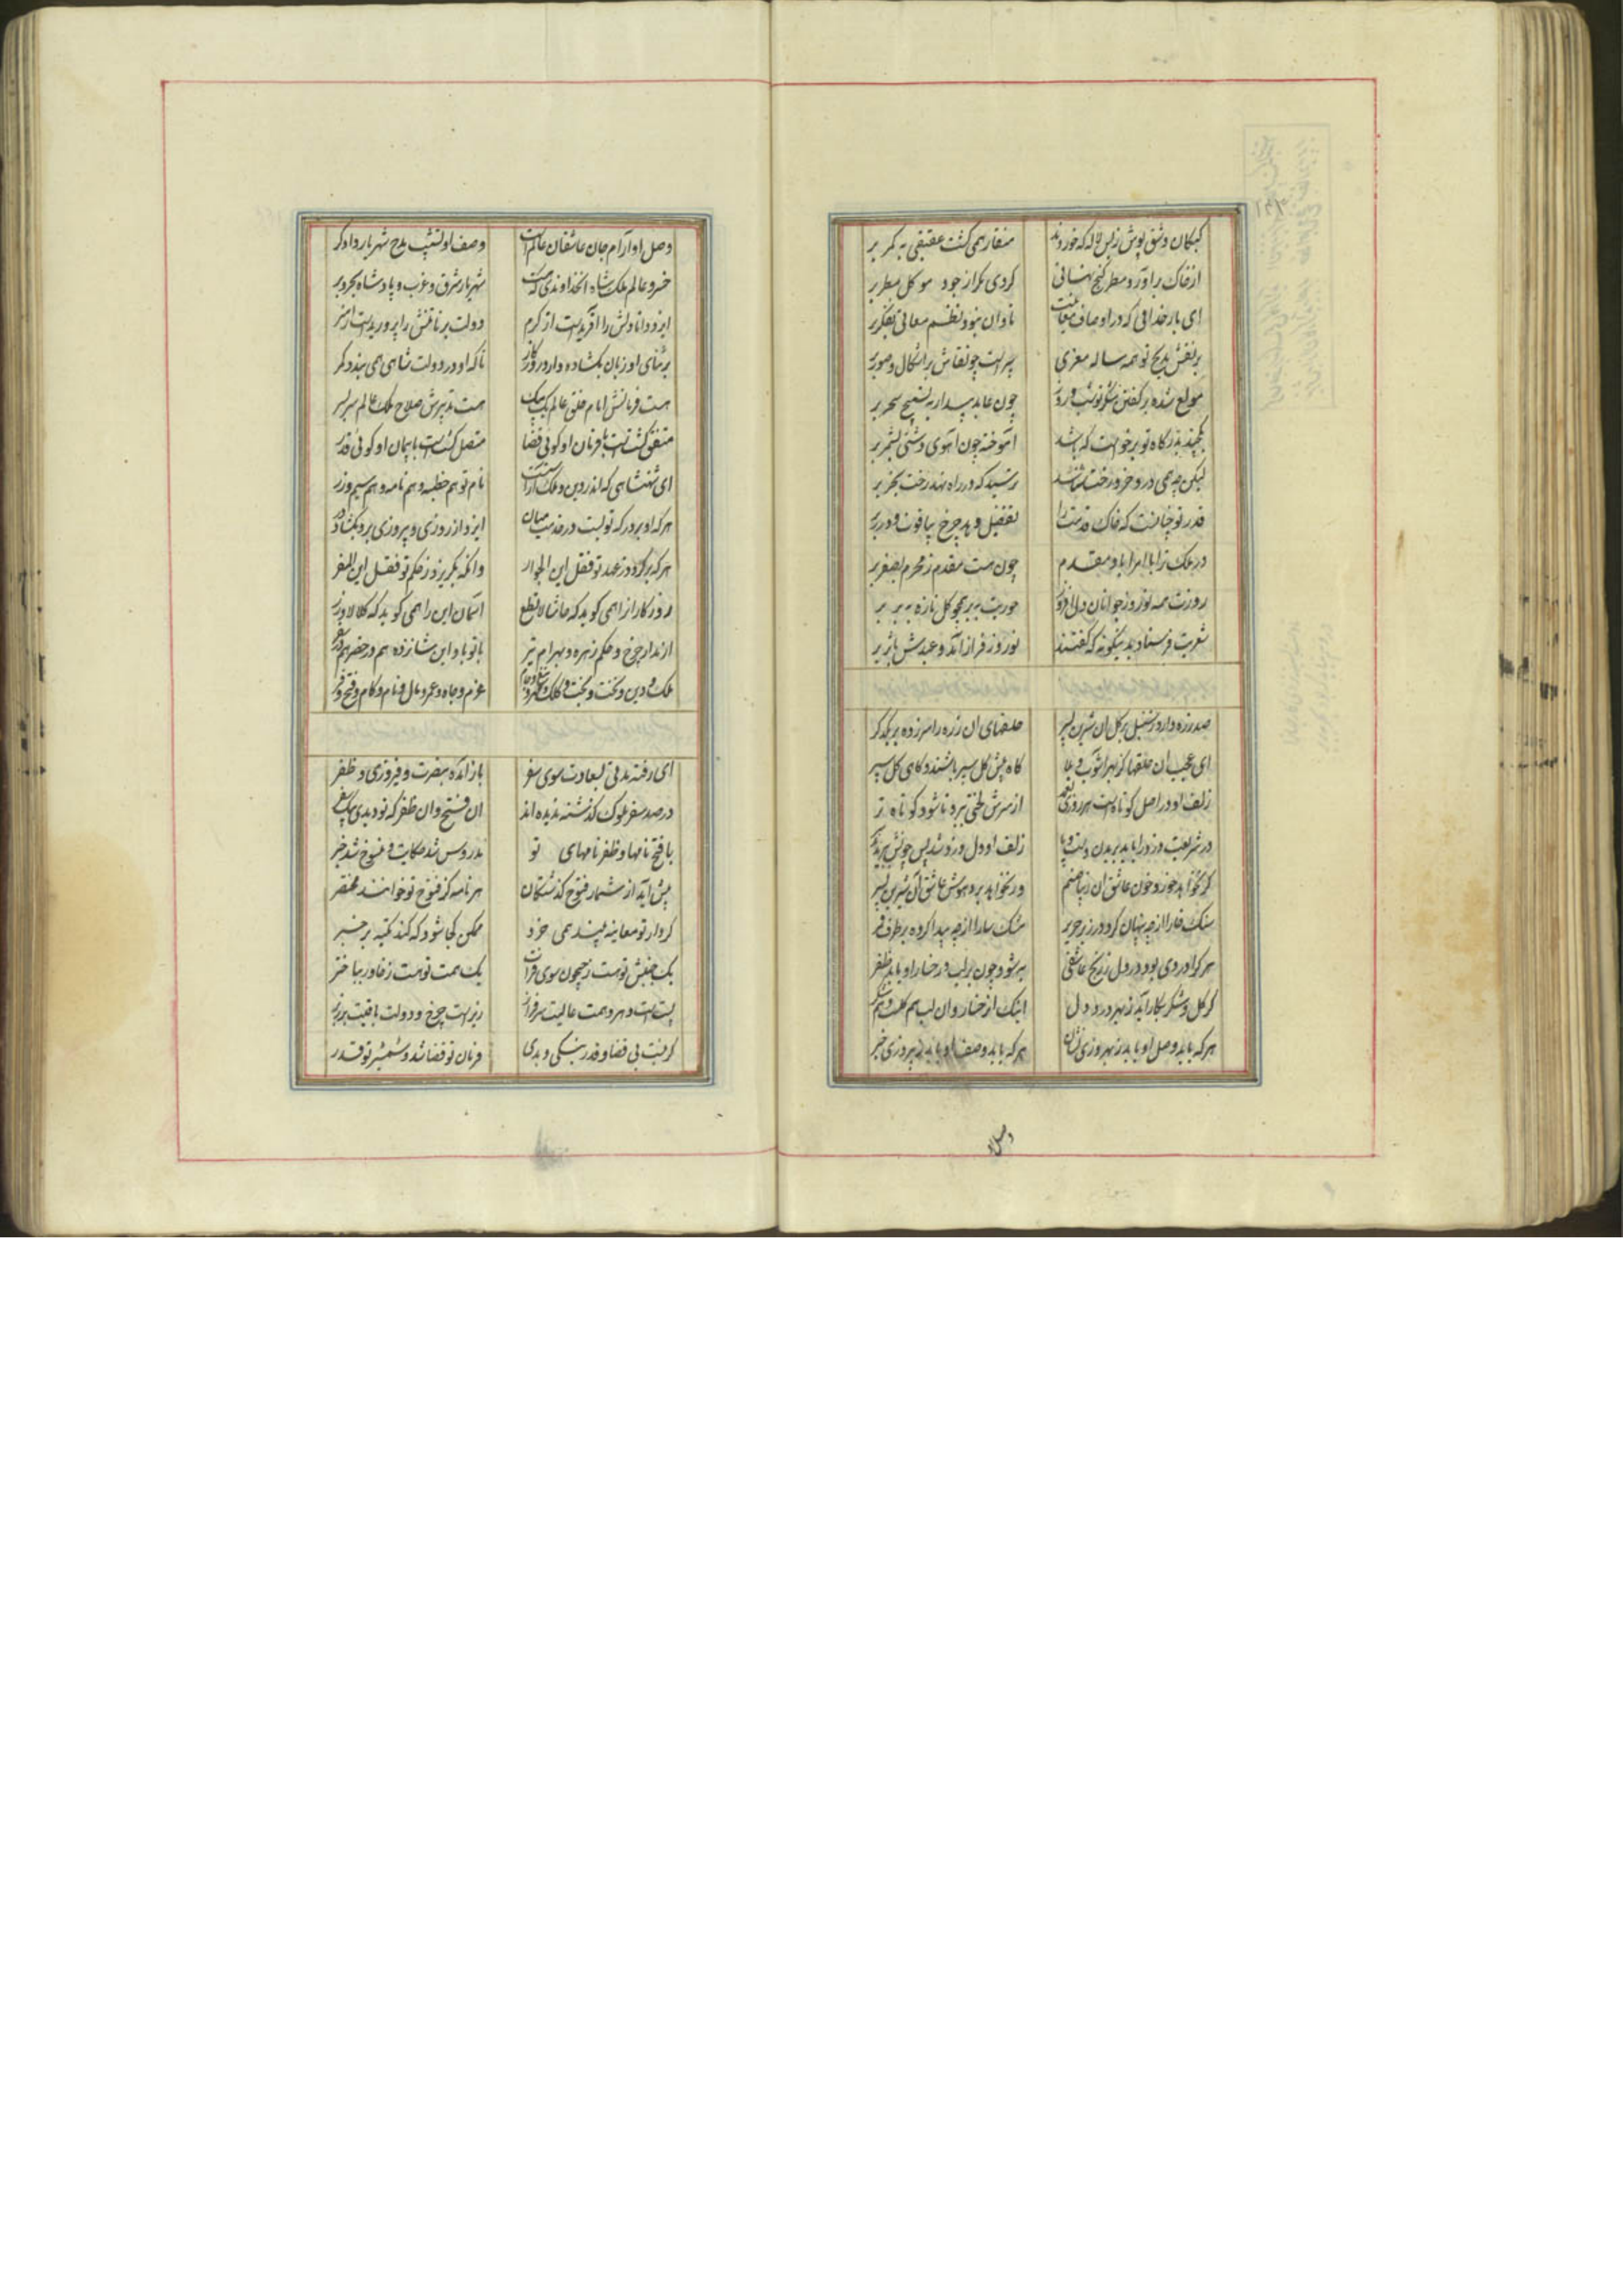 کبکان وشق پوش ز بس لاله که خوردند منقار همی گشت عقیقی به کمر بر
از خاک برآورد مطر گنج نهانی کردی مکر از جود موکل بمطر بر
ای بار خدائی که در اوصاف نادان نبود نظم معانی بفکر بر
بر نقش مدیح تو همه ساله معزی پیراست چو نقاش براشکال و صور بر
مولع شده بر گفتن شکر تو شب و روز چون عابد بیدار به تسبیح سحر بر
بدرگاه تو برخواست که باشد آموخته چون آهوی دشتی بشمر بر
لیکن چه همی در و خر و رخت ترسید که در راه نهد رخت بخر بر
قدر تو چنانست که خاک قدمت را تفضیل دهد چرخ بیاقوت و درر بر
در ملک ترا با امرا باد مقدم چون هست مقدم ز محرم بصفر بر
روزت همه نوروز جوانان حوریت به بر همچو گل تازه به بر بر
شعریت فرستاد بدینگونه که گفتند نوروز فراز آمد و عیدش باثر بر
صد زره دارد ز سنبل بر گل آن شیرین پسر حلقهای آن زره را سر زده بر یکدگر
ای عجب آن حلقها کز بهر آشوب و بلا گاه پیش گل سپر باشند و گاهی گل سپر
زلف او در اصل کوتاه است هر روزی از سرش لختی ببرد تا شود کوتاه تر
در شریعت دزد را باید بریدن دست و پا زلف او دل دزد شد پس چونش ببریدند
گر نخواهد خورد خون عاشق آن زیبا صنم ور نخواهد برد هوش عاشق آن شیرین پسر
سنگ خارا از چه پنهان کرد در زیر حریر مشک سارا از چه پیدا کرده بر طرف قمر
هر کرا دردی بود در دل ز رنج عاشقی به شود چون بر لب و رخسار او یابد ظفر
گر گل و شکر بکار آید ز بهر درد دل اینک از رخسار و آن لب هم گلست و هم شکر
هر که یابد وصل او یابد ز بهروزی نشان هر که یابد وصف او یابد ز پیروزی خبر
وصل او
وصل او آرام جان عاشقان عالم است وصف او تشبیب مدح شهریار دادگر
خسرو عالم ملکشاه آن خداوندی که هست شهریار شرق و غرب و پادشاه بحر و بر
ایزد دانا دلش را آفریدست از کرم دولت برنا تنش را پروریدست از هنر
بر ثنای او زبان بگشاده دارد روزگار تا که او در دولت شاهی همی بندد کمر
هست فرمانش امام خلق عالم یک بیک هست تدبیرش صلاح ملک عالم سر بسر
متفق گشتست با فرمان او گوئی قضا متصل گشتست با پیمان او گوئی قدر
ای شهنشاهی که اندر دین و ملک آراستست نام تو هم خطبه و هم نامه و هم سیم و زر
هر که او بر درگه تو بست در خدمت میان ایزد از روزی و پیروزی برو بگشاد در
هر که برگردد ز عهد تو فقل این الجوار وانکه بگریزد ز حکم تو فقل این المفر
روزگار آنرا همی گوید که حاشا لا تطع آسمان این را همی گوید که کلا لا وزر
از مدار چرخ و حکم زهره و بهرام و تیر با تو باد این شانزده هم در حضر هم در سفر
ملک و دین و تخت و بخت و کلک و عزم و جاه و عمر و مال و نام و کام و فتح و فر
ای رفته مدتی بسعادت سوی سفر باز آمده بنصرت و فیروزی و ظفر
در صد سفر ملوک گذشته ندیده اند آن فتح و آن ظفر که تو دیدی بیک سفر
با فتح نامها و ظفر نامهای تو مدروس شد حکایت و منسوخ شد خبر
پیش آید از شمار فتوح گذشتگان هر نامه کز فتوح تو خوانند مختصر
کردار تو معاینه بیند همی خرد ممکن کجا شود که کند تکیه بر خبر
یک جنبش تو هست ز جیحون سوی فرات یک همت تو هست ز خاور بباختر
پست است دهر و همت عالیت سرفراز زیر است چرخ و دولت باقیت بر زبر
گر نیست بی قضا و قدر نیکی و بدی فرمان تو قضا شد و شمشیر تو قدر